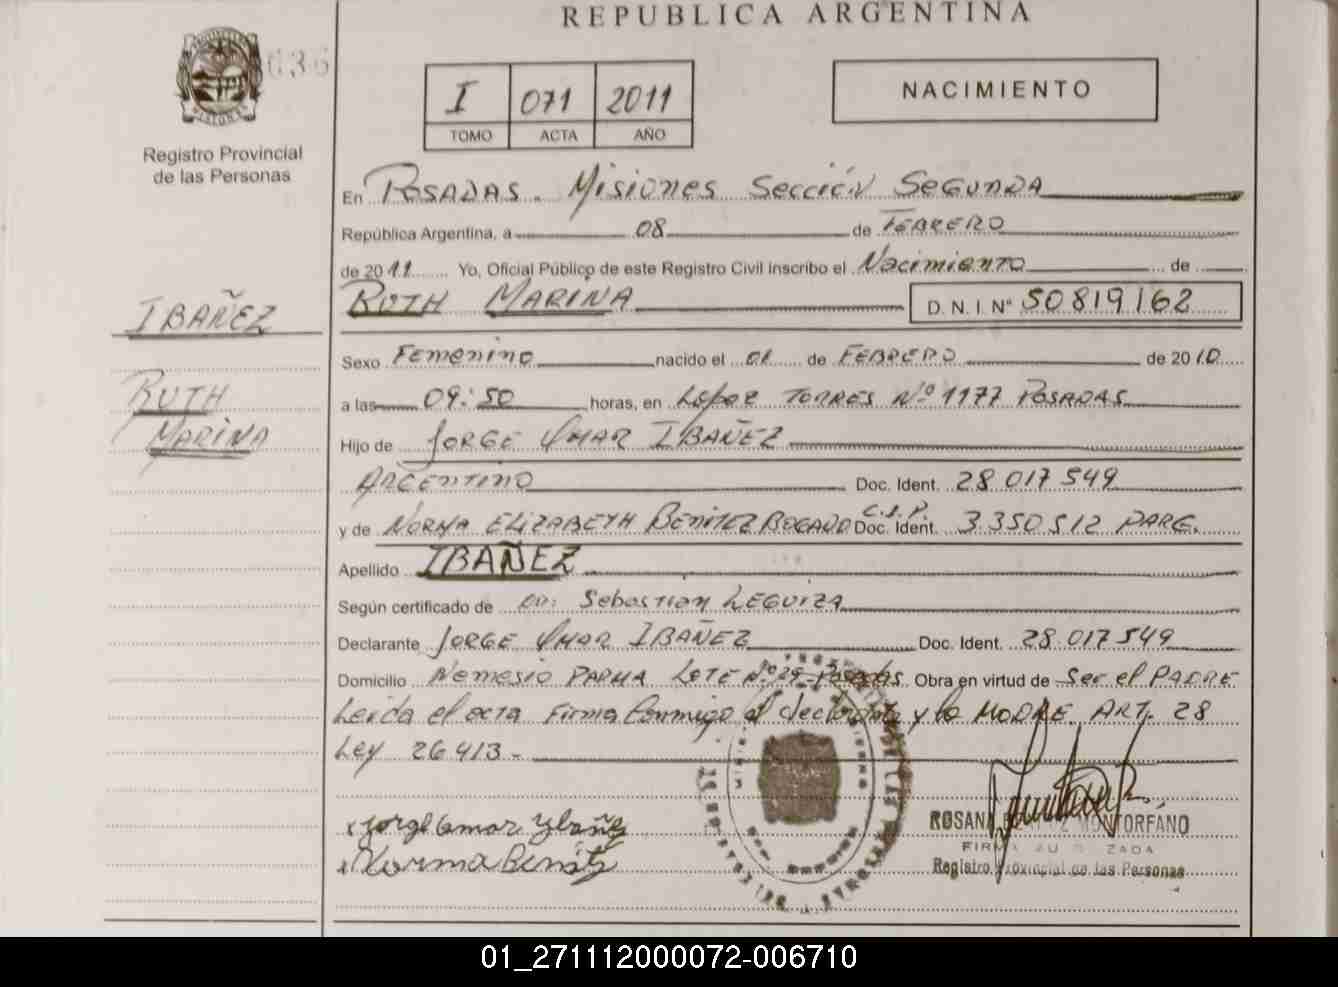 REPUBLICA ARGENTINA
036
Registro Provincial
de las Personas
I 071 2011
TOMO ACTA AÑO
NACIMIENTO
En POSADAS. Misiones Sección Segunda
República Argentina, a 08 de FEBRERO
de 2011 Yo, Oficial Público de este Registro Civil inscribo el Nacimiento de
RUTH MARINA D. N. I. Nº 50819162
IBAÑEZ
RUTH
MARINA
Sexo Femenino nacido el 01 de FEBRERO de 2010
a las 09:50 horas, en Lopez TORRES Nº 1177 POSADAS
Hijo de JORGE OMAR IBAÑEZ
ARGENTINO Doc. Ident. 28 017 549
y de NORMA ELIZABETH BENITEZ BOGADO C.I.P. Doc. Ident. 3.350 512 PARG.
Apellido IBAÑEZ
Según certificado de Dr. Sebastian LEGUIZA
Declarante JORGE OMAR IBAÑEZ Doc. Ident. 28.017 549
Domicilio Nemesio PARMA LOTE Nº 29-Posadas Obra en virtud de Ser el PADRE
Leida el acta Firma Conmigo el declarante y la MADRE. ART. 28
Ley 26413-
Jorge Omar Ybañez
Norma Benitez
ROSANA MONTORFANO
FIRMA AUTORIZADA
Registro Provincial de las Personas
01_271112000072-006710